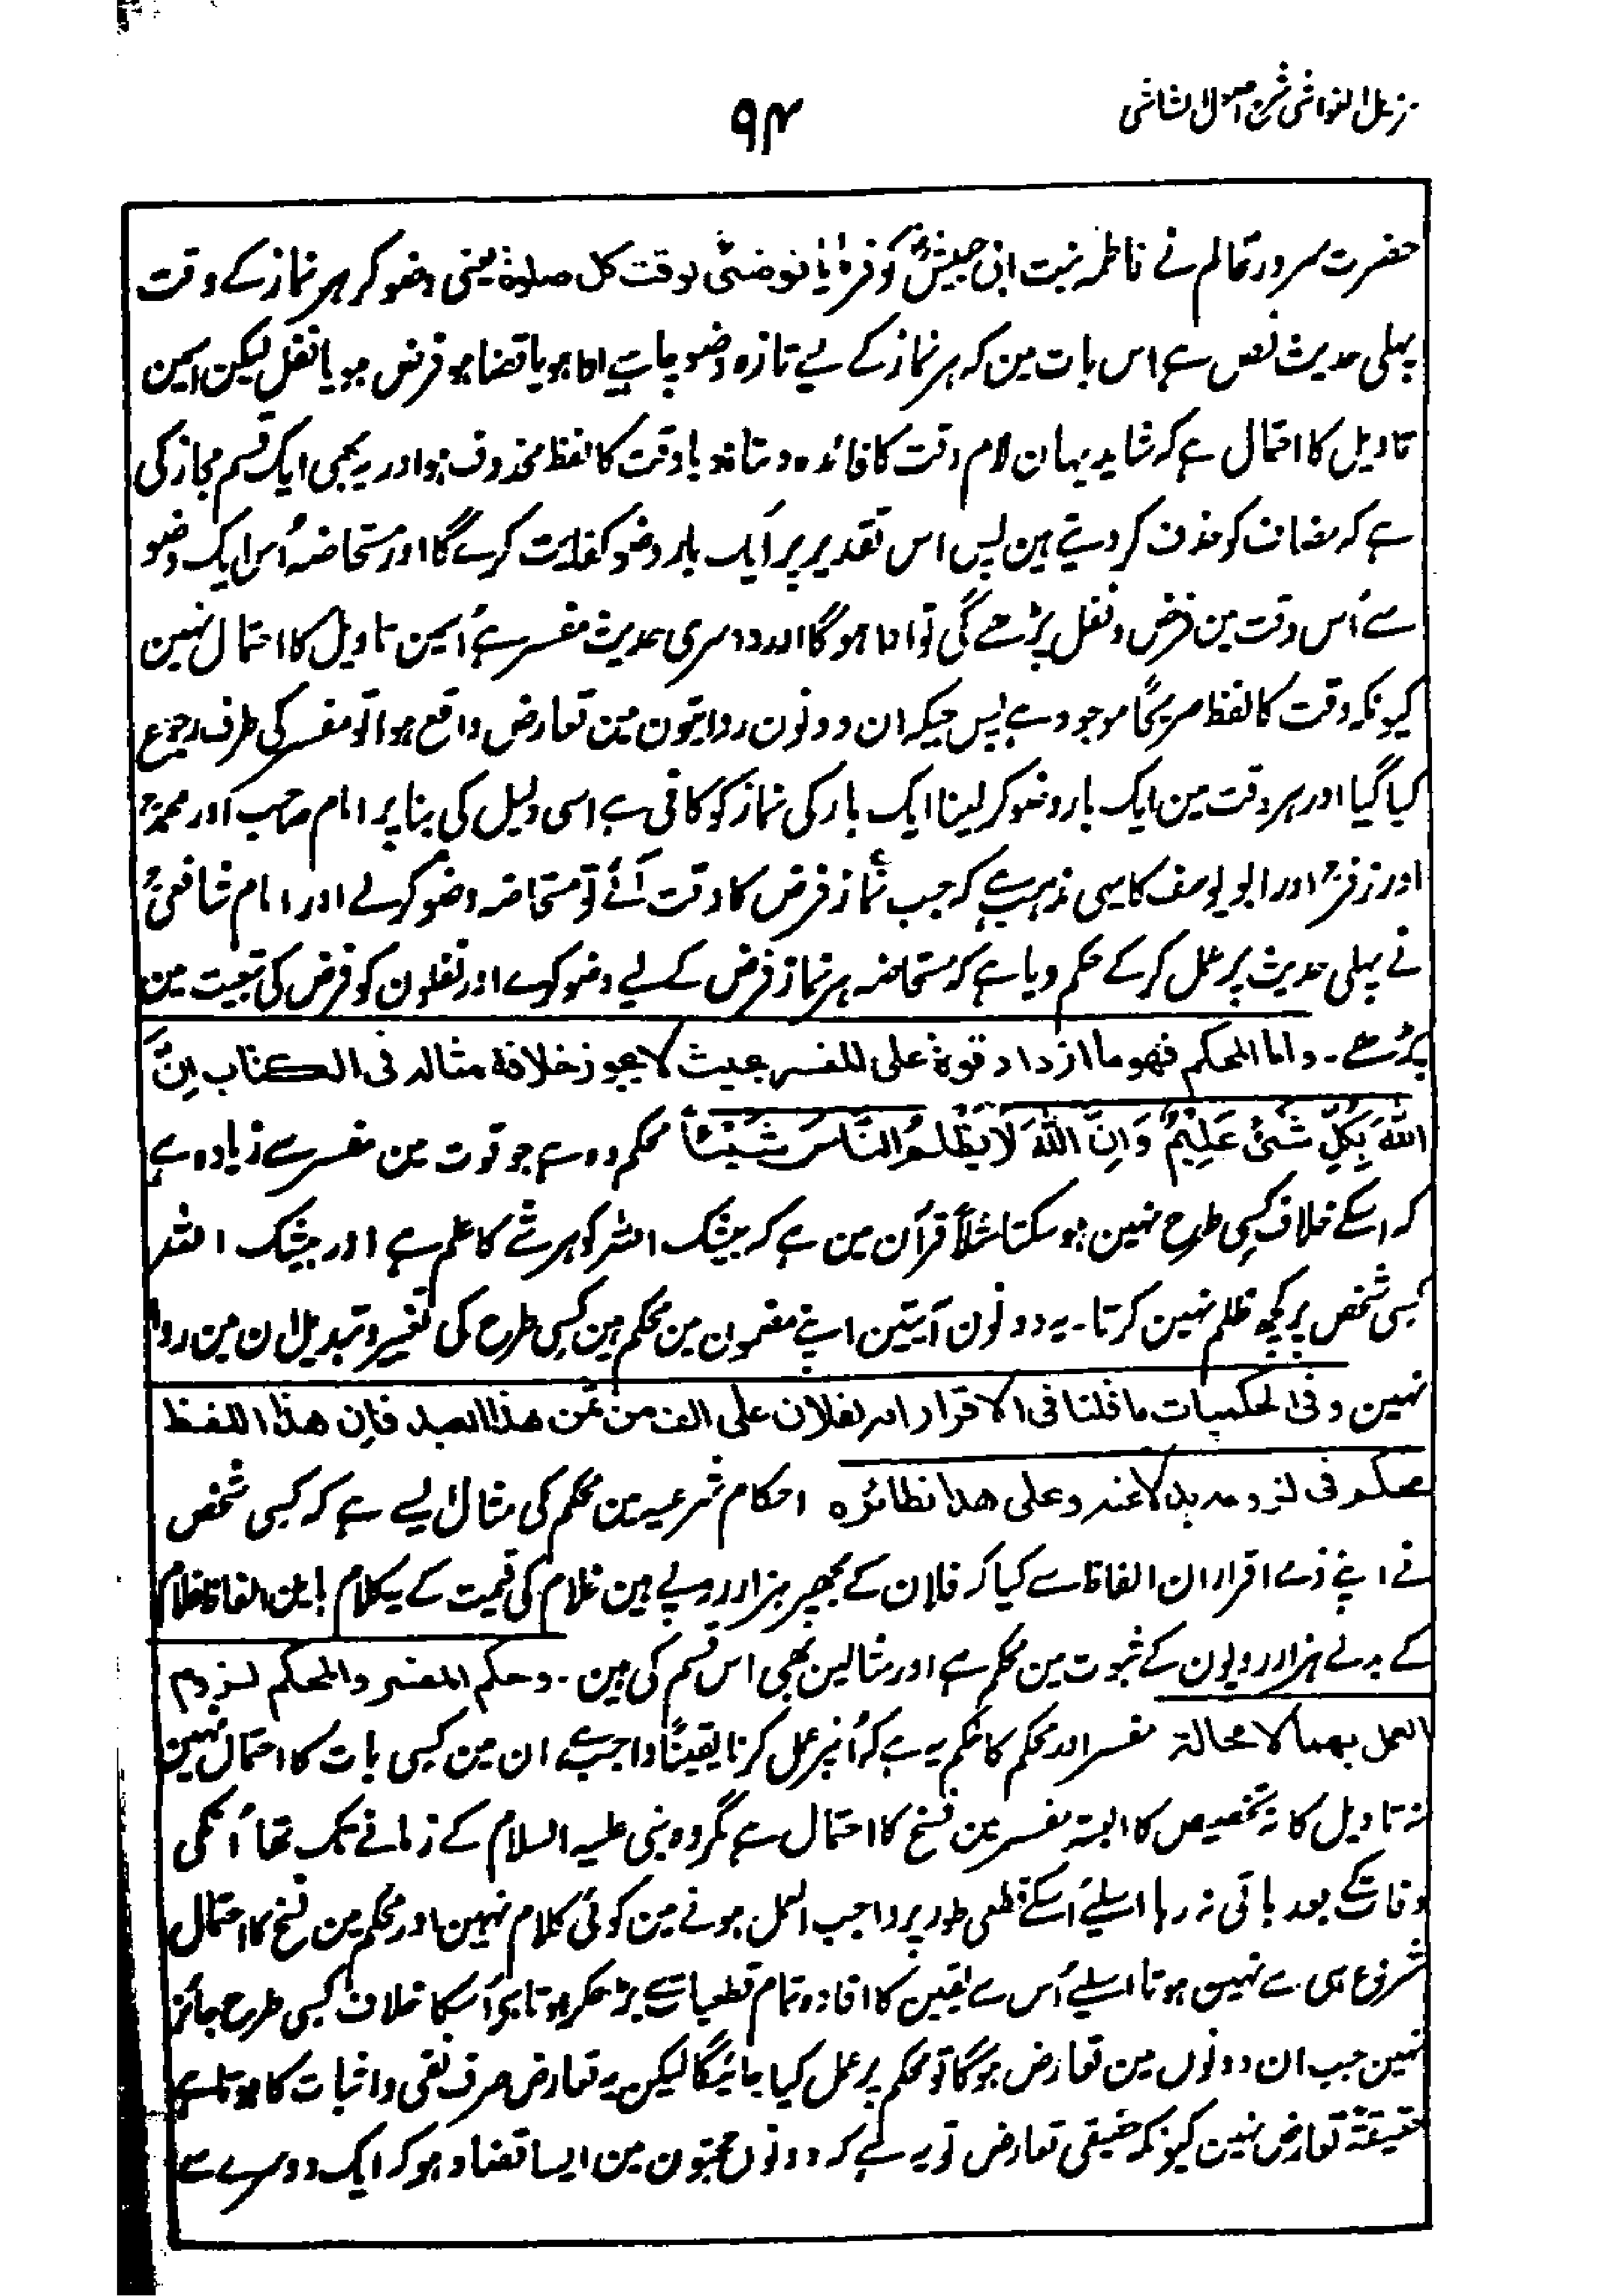 مزیل الغواشی شرح اصول الشاشی
۹۴
حضرت سرور عالم نے فاطمہ بنت ابی حبیشؓ کو فرمایا توضئی لوقت کل صلوۃ یعنی وضو کر ہر نماز کے وقت
پہلی حدیث نص ہے اس بات مین کہ ہر نماز کے لیے تازہ وضو چاہیے ادا ہو یا قضا ہو فرض ہو یا نفل لیکن اسمین
تاویل کا احتمال ہے کہ شاید یہان لام وقت کا فائدہ دیتا ہو یا وقت کا لفظ محذوف ہو اور یہ بھی ایک قسم مجاز کی
ہے کہ مضاف کو حذف کر دیتے ہین پس اس تقدیر پر ایک بار وضو کفایت کرے گا اور مستحاضہ اُس ایک وضو
سے اُس وقت مین فرض و نفل پڑھے گی تو ادا ہو گا اور دوسری حدیث مفسر ہے اُسمین تاویل کا احتمال نہین
کیونکہ وقت کا لفظ صریحًا موجود ہے پس جبکہ ان دونون روایتون مین تعارض واقع ہوا تو مفسر کی طرف رجوع
کیا گیا اور ہر وقت مین ایک بار وضو کر لینا ایک بار کی نماز کو کافی ہے اسی دلیل کی بنا پر امام صاحب اور محمدؒ
اور زفرؒ اور ابو یوسف کا یہی مذہب ہے کہ جب نماز فرض کا وقت آئے تو مستحاضہ وضو کرلے اور امام شافعیؒ
نے پہلی حدیث پر عمل کرکے حکم دیا ہے کہ مستحاضہ ہر نماز فرض کے لیے وضو کرے اور نفلون کو فرض کی تبعیت مین
پڑھے۔ واما المحکم فھو ما ازداد قوۃ علی المفسر بحیث لا یجوز خلافہ مثالہ فی الکتاب اِنَّ
اللّٰہَ بِکُلِّ شَیْئٍ عَلِیْمٌ وَاِنَّ اللّٰہَ لَا یَظْلِمُ النَّاسَ شَیْئًا محکم وہ ہے جو قوت مین مفسر سے زیادہ ہے
کہ اسکے خلاف کسی طرح نہین ہو سکتا مثلاً قرآن مین ہے کہ بیشک اللہ کو ہر شے کا علم ہے اور بیشک اللہ
کسی شخص پر کچھ ظلم نہین کرتا۔ یہ دونون آیتین اپنے مضمون مین محکم ہین کسی طرح کی تغییر و تبدیل ان مین روا
نہین وفی الحکمیات ما قلنا فی الاقرار انہ لفلان علی الف من ثمن ھذا العبد فان ھذا اللفظ
محکم فی لزومہ بدلا عنہ وعلی ھذا نظائرہ احکام شرعیہ مین محکم کی مثال ایسے ہے کہ کسی شخص
نے اپنے ذمے اقرار ان الفاظ سے کیا کہ فلان کے مجھپر ہزار روپے ہین غلام کی قیمت کے یہ کلام باین الفاظ غلام
کے بدلے ہزار روپون کے ثبوت مین محکم ہے اور مثالین بھی اس قسم کی ہین۔ وحکم المفسر والمحکم لزوم
العمل بھما لا محالۃ مفسر اور محکم کا حکم یہ ہے کہ اُنپر عمل کرنا یقینًا واجب ہے ان مین کسی بات کا احتمال نہین
نہ تاویل کا نہ تخصیص کا البتہ مفسر مین نسخ کا احتمال ہے مگر وہ نبی علیہ السلام کے زمانے تک تھا اُنکی
وفات کے بعد باقی نہ رہا اسلیے اسکے قطعی طور پر واجب العمل ہونے مین کوئی کلام نہین اور محکم مین نسخ کا احتمال
شروع ہی سے نہین ہوتا اسلیے اُس سے یقین کا افادہ تمام قطعیات سے بڑھکر ہوتا ہے اُسکا خلاف کسی طرح جائز
نہین جب ان دونوں مین تعارض ہوگا تو محکم پر عمل کیا جائیگا لیکن یہ تعارض صرف نفی و اثبات کا ہوتا ہے
حقیقۃً تعارض نہین کیونکہ حقیقی تعارض تو یہ ہے کہ دونوں حجتون مین ایسا تضاد ہو کہ ایک دوسرے سے